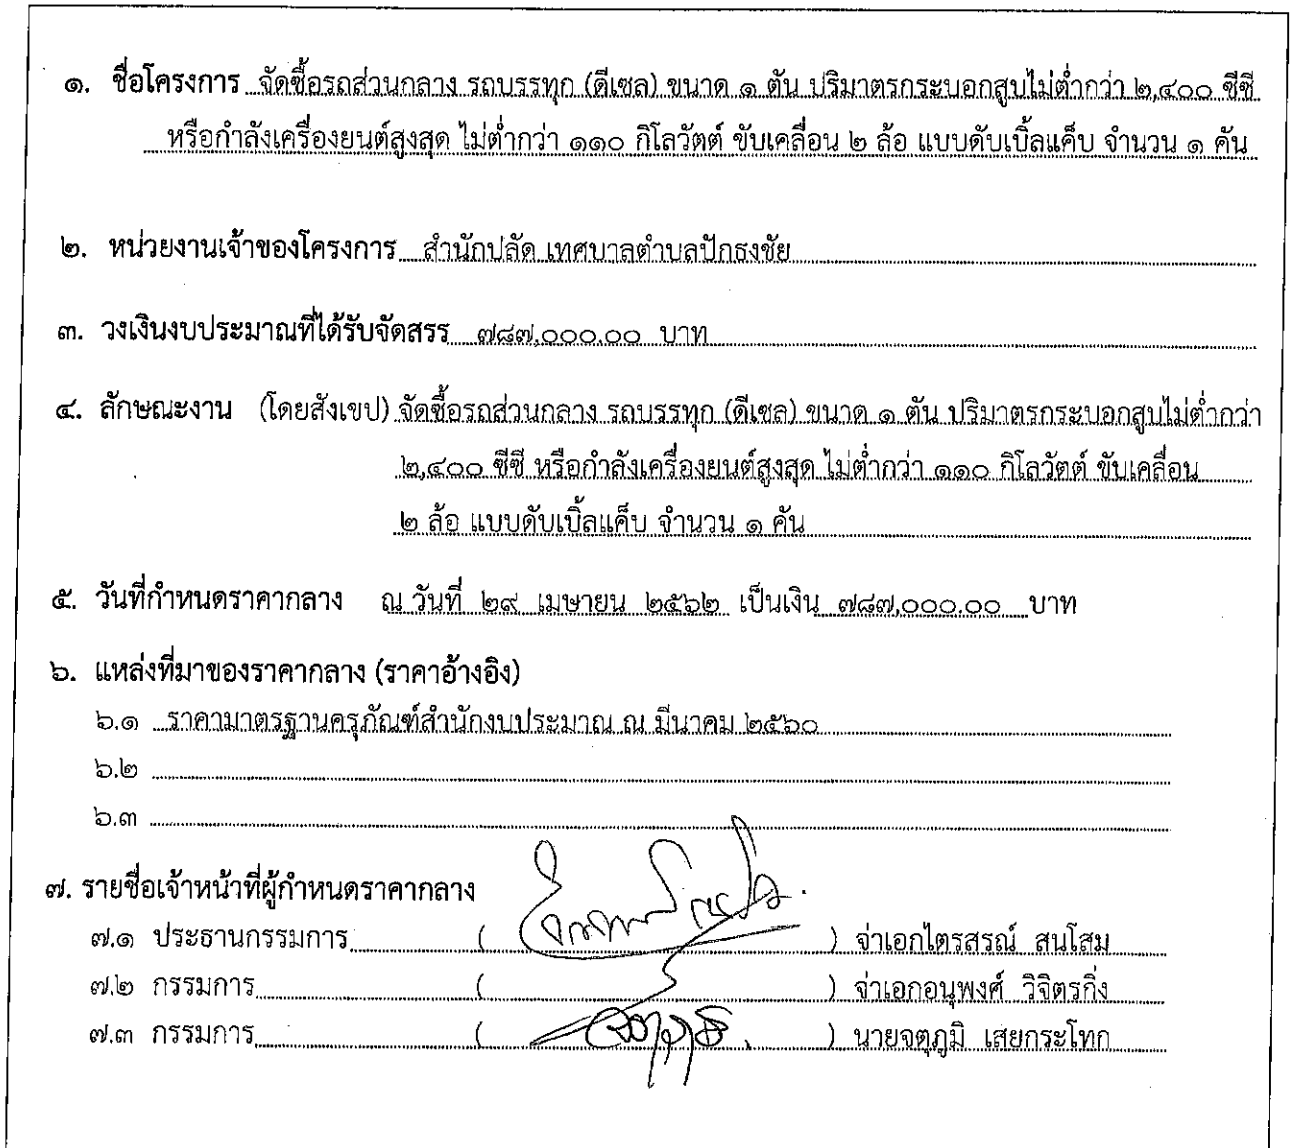 ๑. ชื่อโครงการ จัดซื้อรถส่วนกลาง รถบรรทุก (ดีเซล) ขนาด ๑ ตัน ปริมาตรกระบอกสูบไม่ต่ำกว่า ๒,๔๐๐ ซีซี
หรือกำลังเครื่องยนต์สูงสุด ไม่ต่ำกว่า ๑๑๐ กิโลวัตต์ ขับเคลื่อน ๒ ล้อ แบบดับเบิ้ลแค็บ จำนวน ๑ คัน
๒. หน่วยงานเจ้าของโครงการ สำนักปลัด เทศบาลตำบลปักธงชัย
๓. วงเงินงบประมาณที่ได้รับจัดสรร ๗๘๗,๐๐๐.๐๐ บาท
๔. ลักษณะงาน (โดยสังเขป) จัดซื้อรถส่วนกลาง รถบรรทุก (ดีเซล) ขนาด ๑ ตัน ปริมาตรกระบอกสูบไม่ต่ำกว่า
๒,๔๐๐ ซีซี หรือกำลังเครื่องยนต์สูงสุด ไม่ต่ำกว่า ๑๑๐ กิโลวัตต์ ขับเคลื่อน
๒ ล้อ แบบดับเบิ้ลแค็บ จำนวน ๑ คัน
๕. วันที่กำหนดราคากลาง ณ วันที่ ๒๙ เมษายน ๒๕๖๒ เป็นเงิน ๗๘๗,๐๐๐.๐๐ บาท
๖. แหล่งที่มาของราคากลาง (ราคาอ้างอิง)
๖.๑ ราคามาตรฐานครุภัณฑ์สำนักงบประมาณ ณ มีนาคม ๒๕๖๐
๖.๒
๖.๓
๗. รายชื่อเจ้าหน้าที่ผู้กำหนดราคากลาง
๗.๑ ประธานกรรมการ ( ) จ่าเอกไตรสรณ์ สนโสม
๗.๒ กรรมการ ( ) จ่าเอกอนุพงศ์ วิจิตรกิ่ง
๗.๓ กรรมการ ( ) นายจตุภูมิ เสยกระโทก